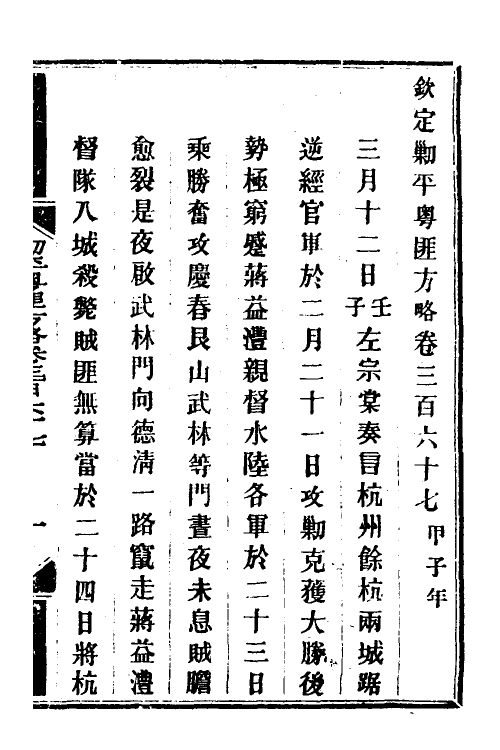 欽定剿平粵匪方略卷三百六十七 甲子年
三月十二日壬子左宗棠奏言杭州餘杭兩城踞
逆經官軍於二月二十一日攻剿克獲大勝後
勢極窮蹙蔣益澧親督水陸各軍於二十三日
乘勝奮攻慶春艮山武林等門晝夜未息賊膽
愈裂是夜啟武林門向德清一路竄走蔣益澧
督隊入城殺斃賊匪無算當於二十四日將杭